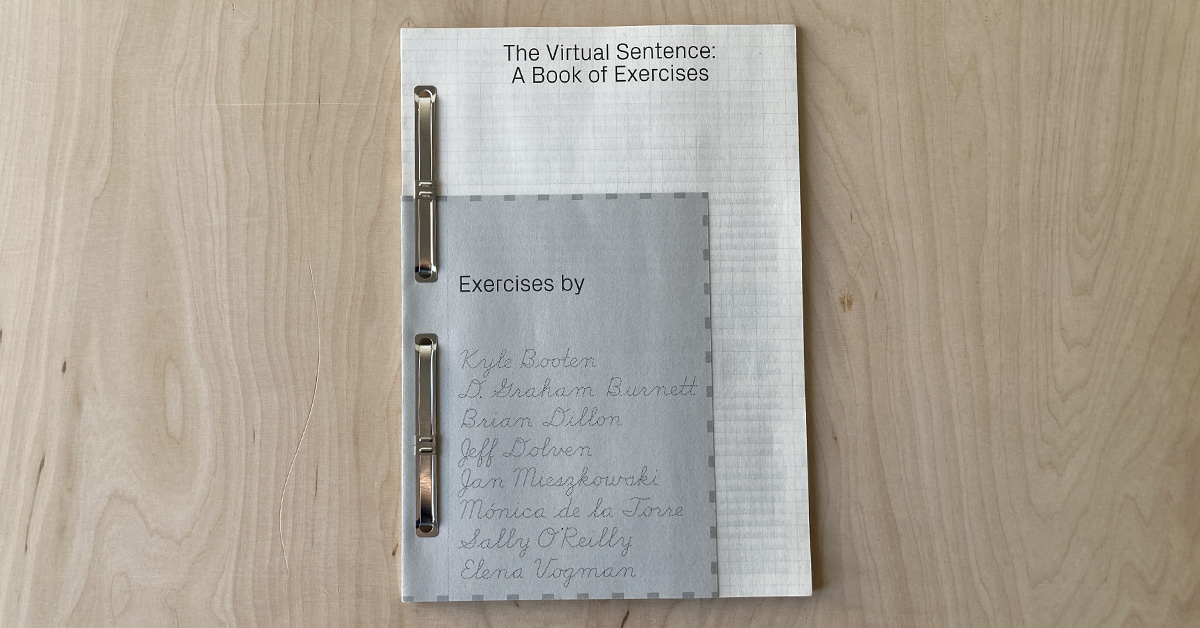 The Virtual Sentence:
A Book of Exercises
Exercises by
Kyle Booten
D. Graham Burnett
Brian Dillon
Jeff Dolven
Jan Mieszkowski
Mónica de la Torre
Sally O'Reilly
Elena Vogman